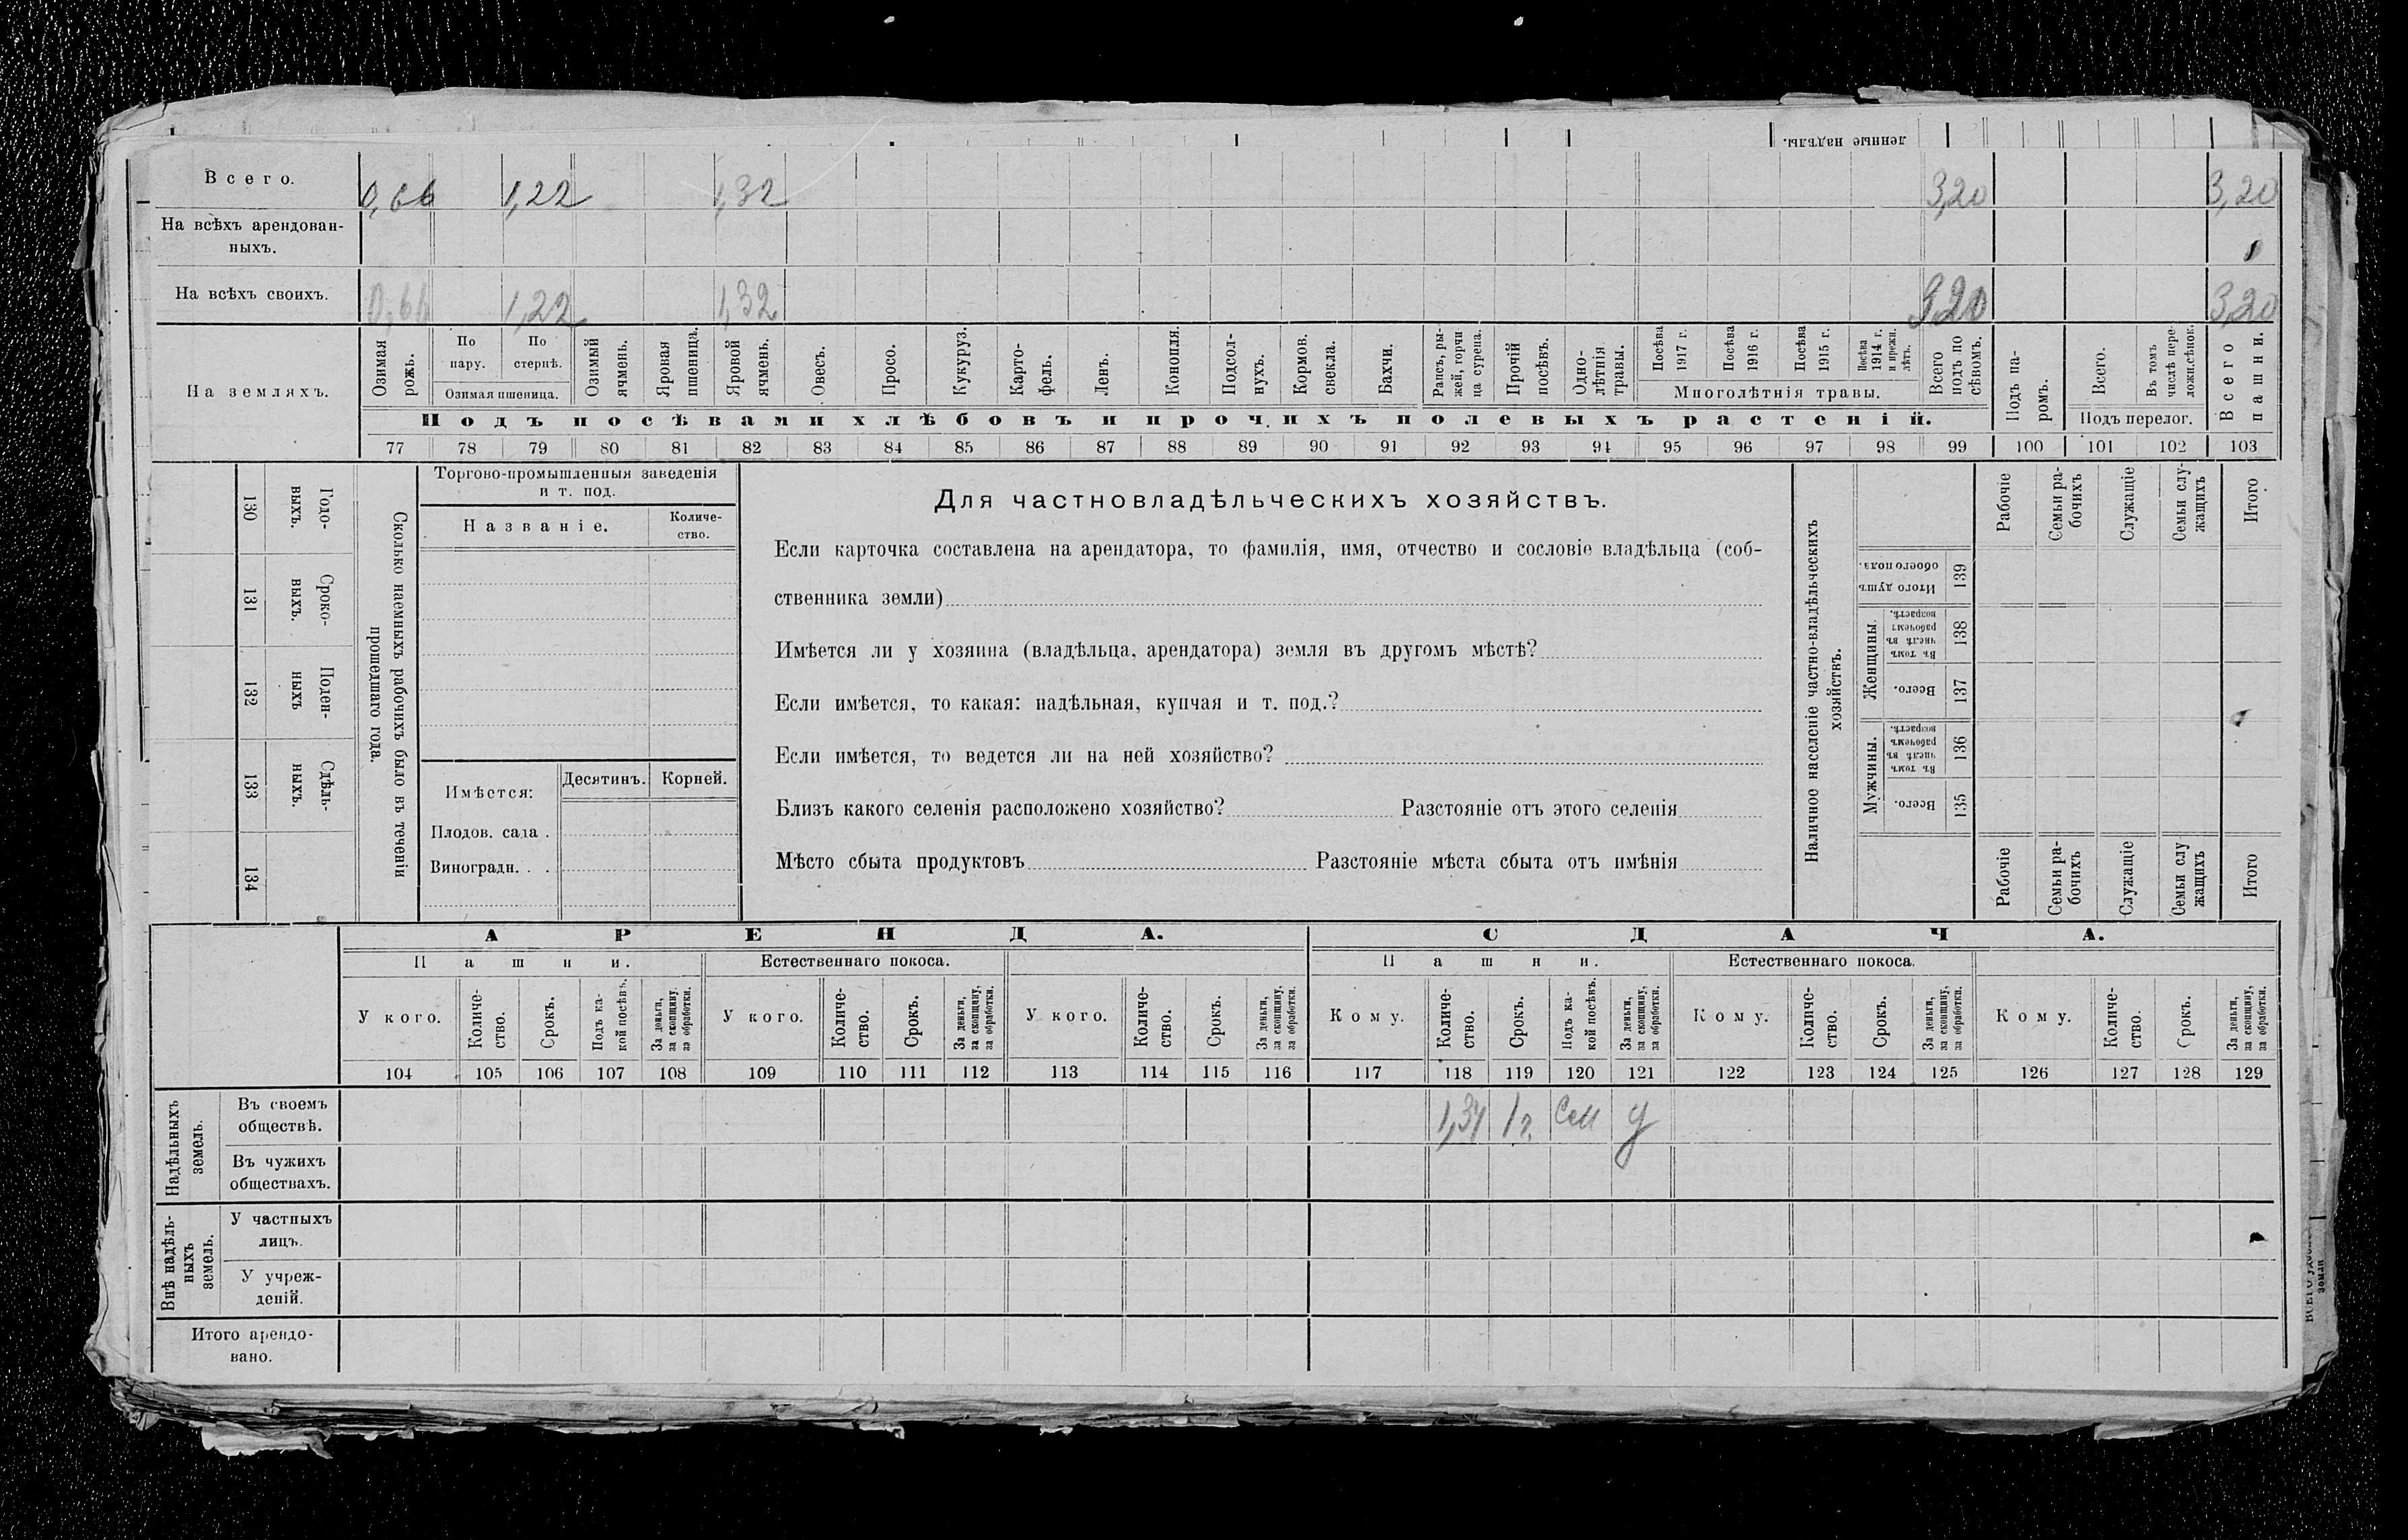 ленные надѣлы.
Всего. 0,66 1,22 1,32 3,20 3,20
На всѣхъ арендован-
ныхъ.
На всѣхъ своихъ. 0,66 1,22 1,32 3,20 3,20
На земляхъ.
Озимая
рожь.
По
пару.
По
стернѣ.
Озимая пшеница.
Озимый
ячмень.
Яровая
пшеница.
Яровой
ячмень.
Овесъ.
Просо.
Кукуруз.
Карто-
фель.
Ленъ.
Конопля.
Подсол-
нухъ.
Кормов.
свекла.
Бахчи.
Рапсъ, ры-
жей, горчи
ца сурепа.
Прочій
посѣвъ.
Одно-
лѣтнія
травы.
Посѣва
1917 г.
Посѣва
1916 г.
Посѣва
1915 г.
Посѣва
1914 г.
и прежн.
лѣтъ.
Многолѣтнія травы.
Всего
подъ по
сѣвомъ.
Подъ па-
ромъ.
Всего.
Въ томъ
числѣ пере-
ложн.сѣнок.
Подъ перелог.
Всего
пашни.
Подъ посѣвами хлѣбовъ и прочихъ полевыхъ растеній.
77 78 79 80 81 82 83 84 85 86 87 88 89 90 91 92 93 94 95 96 97 98 99 100 101 102 103
Сколько наемныхъ рабочихъ было въ теченіи
прошедшаго года.
Годо-
выхъ.
130
Сроко-
выхъ.
131
Поден-
ныхъ
132
Сдѣль-
ныхъ.
133
134
Торгово-промышленныя заведенія
и т. под.
Названіе.
Количе-
ство.
Имѣется:
Десятинъ.
Корней.
Плодов. сада .
Виноградн. . .
Для частновладѣльческихъ хозяйствъ.
Если карточка составлена на арендатора, то фамилія, имя, отчество и сословіе владѣльца (соб-
ственника земли)
Имѣется ли у хозяина (владѣльца, арендатора) земля въ другомъ мѣстѣ?
Если имѣется, то какая: надѣльная, купчая и т. под.?
Если имѣется, то ведется ли на ней хозяйство?
Близъ какого селенія расположено хозяйство? Разстояніе отъ этого селенія
Мѣсто сбыта продуктовъ Разстояніе мѣста сбыта отъ имѣнія
Наличное населеніе частно-владѣльческихъ
хозяйствъ.
Рабочіе
Семьи ра-
бочихъ
Служащіе
Семьи слу-
жащихъ
Итого
Итого душъ
обоего пола.
139
Женщины.
Въ томъ
числѣ въ
рабочемъ
возрастѣ.
138
Всего.
137
Мужчины.
Въ томъ
числѣ въ
рабочемъ
возрастѣ.
136
Всего.
135
Рабочіе
Семьи ра-
бочихъ
Служащіе
Семьи слу
жащихъ
Итого
АРЕНДА. СДАЧА.
Пашни. Естественнаго покоса. Пашни. Естественнаго покоса.
У кого.
Количе-
ство.
Срокъ.
Подъ ка-
кой посѣвъ.
За деньги,
за скопщину,
за обработки.
У кого.
Количе-
ство.
Срокъ.
За деньги,
за скопщину,
за обработки.
У кого.
Количе-
ство.
Срокъ.
За деньги,
за скопщину,
за обработки.
Кому.
Количе-
ство.
Срокъ.
Подъ ка-
кой посѣвъ.
За деньги,
за скопщину,
за обработки.
Кому.
Количе-
ство.
Срокъ.
За деньги,
за скопщину,
за обработки.
Кому.
Количе-
ство.
Срокъ.
За деньги,
за скопщину,
за обработки.
104 105 106 107 108 109 110 111 112 113 114 115 116 117 118 119 120 121 122 123 124 125 126 127 128 129
Надѣльныхъ
земель.
Въ своемъ
обществѣ.
1,34 1 г.
Въ чужихъ
обществахъ.
Внѣ надѣль-
ныхъ
земель.
У частныхъ
лицъ.
У учреж-
деній.
Итого арендо-
вано.